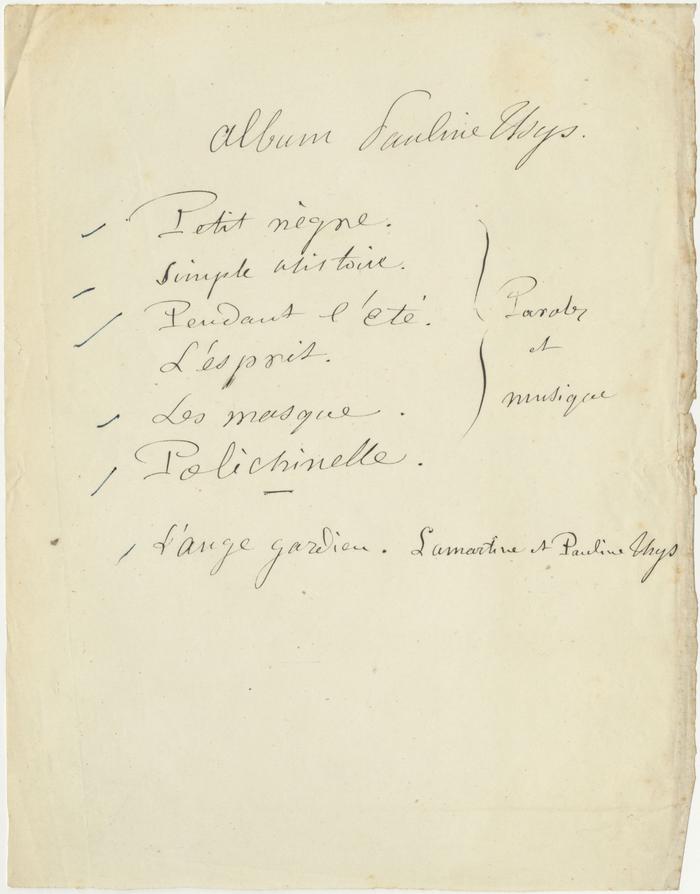 Album Pauline Thys.
Petit nègre.
Simple histoire.
Pendant l'été.
L'esprit.
Les masque.
Polichinelle.
Paroles
et
musique
L'ange gardien. Lamartine et Pauline Thys